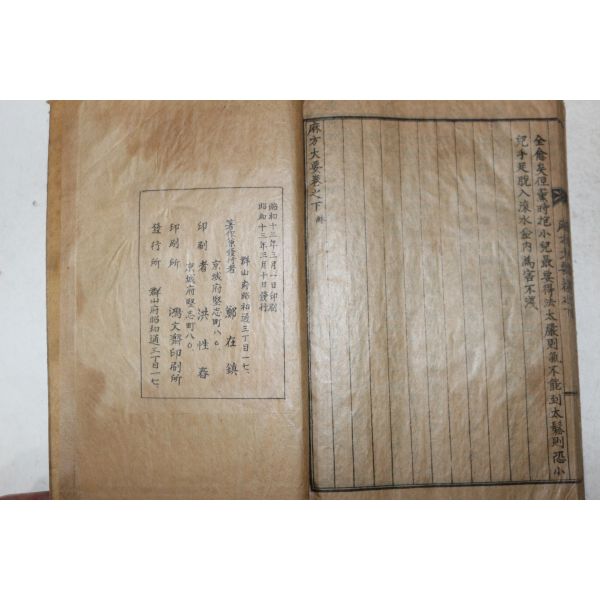 全愈矣但薰時抱小兒最要得法太嚴則氣不能到太鬆則恐小
兒手足脫入滾水金內為害不淺
麻方大要卷之下 終
昭和十三年三月一日印刷
昭和十三年三月十日發行
群山府昭和通三丁目一七、
著作兼發行者 鄭在鎮
京城府堅志町八〇、
印刷者 洪性春
京城府堅志町八〇
印刷所 鴻文齋印刷所
發行所 群山府昭和通三丁目一七、